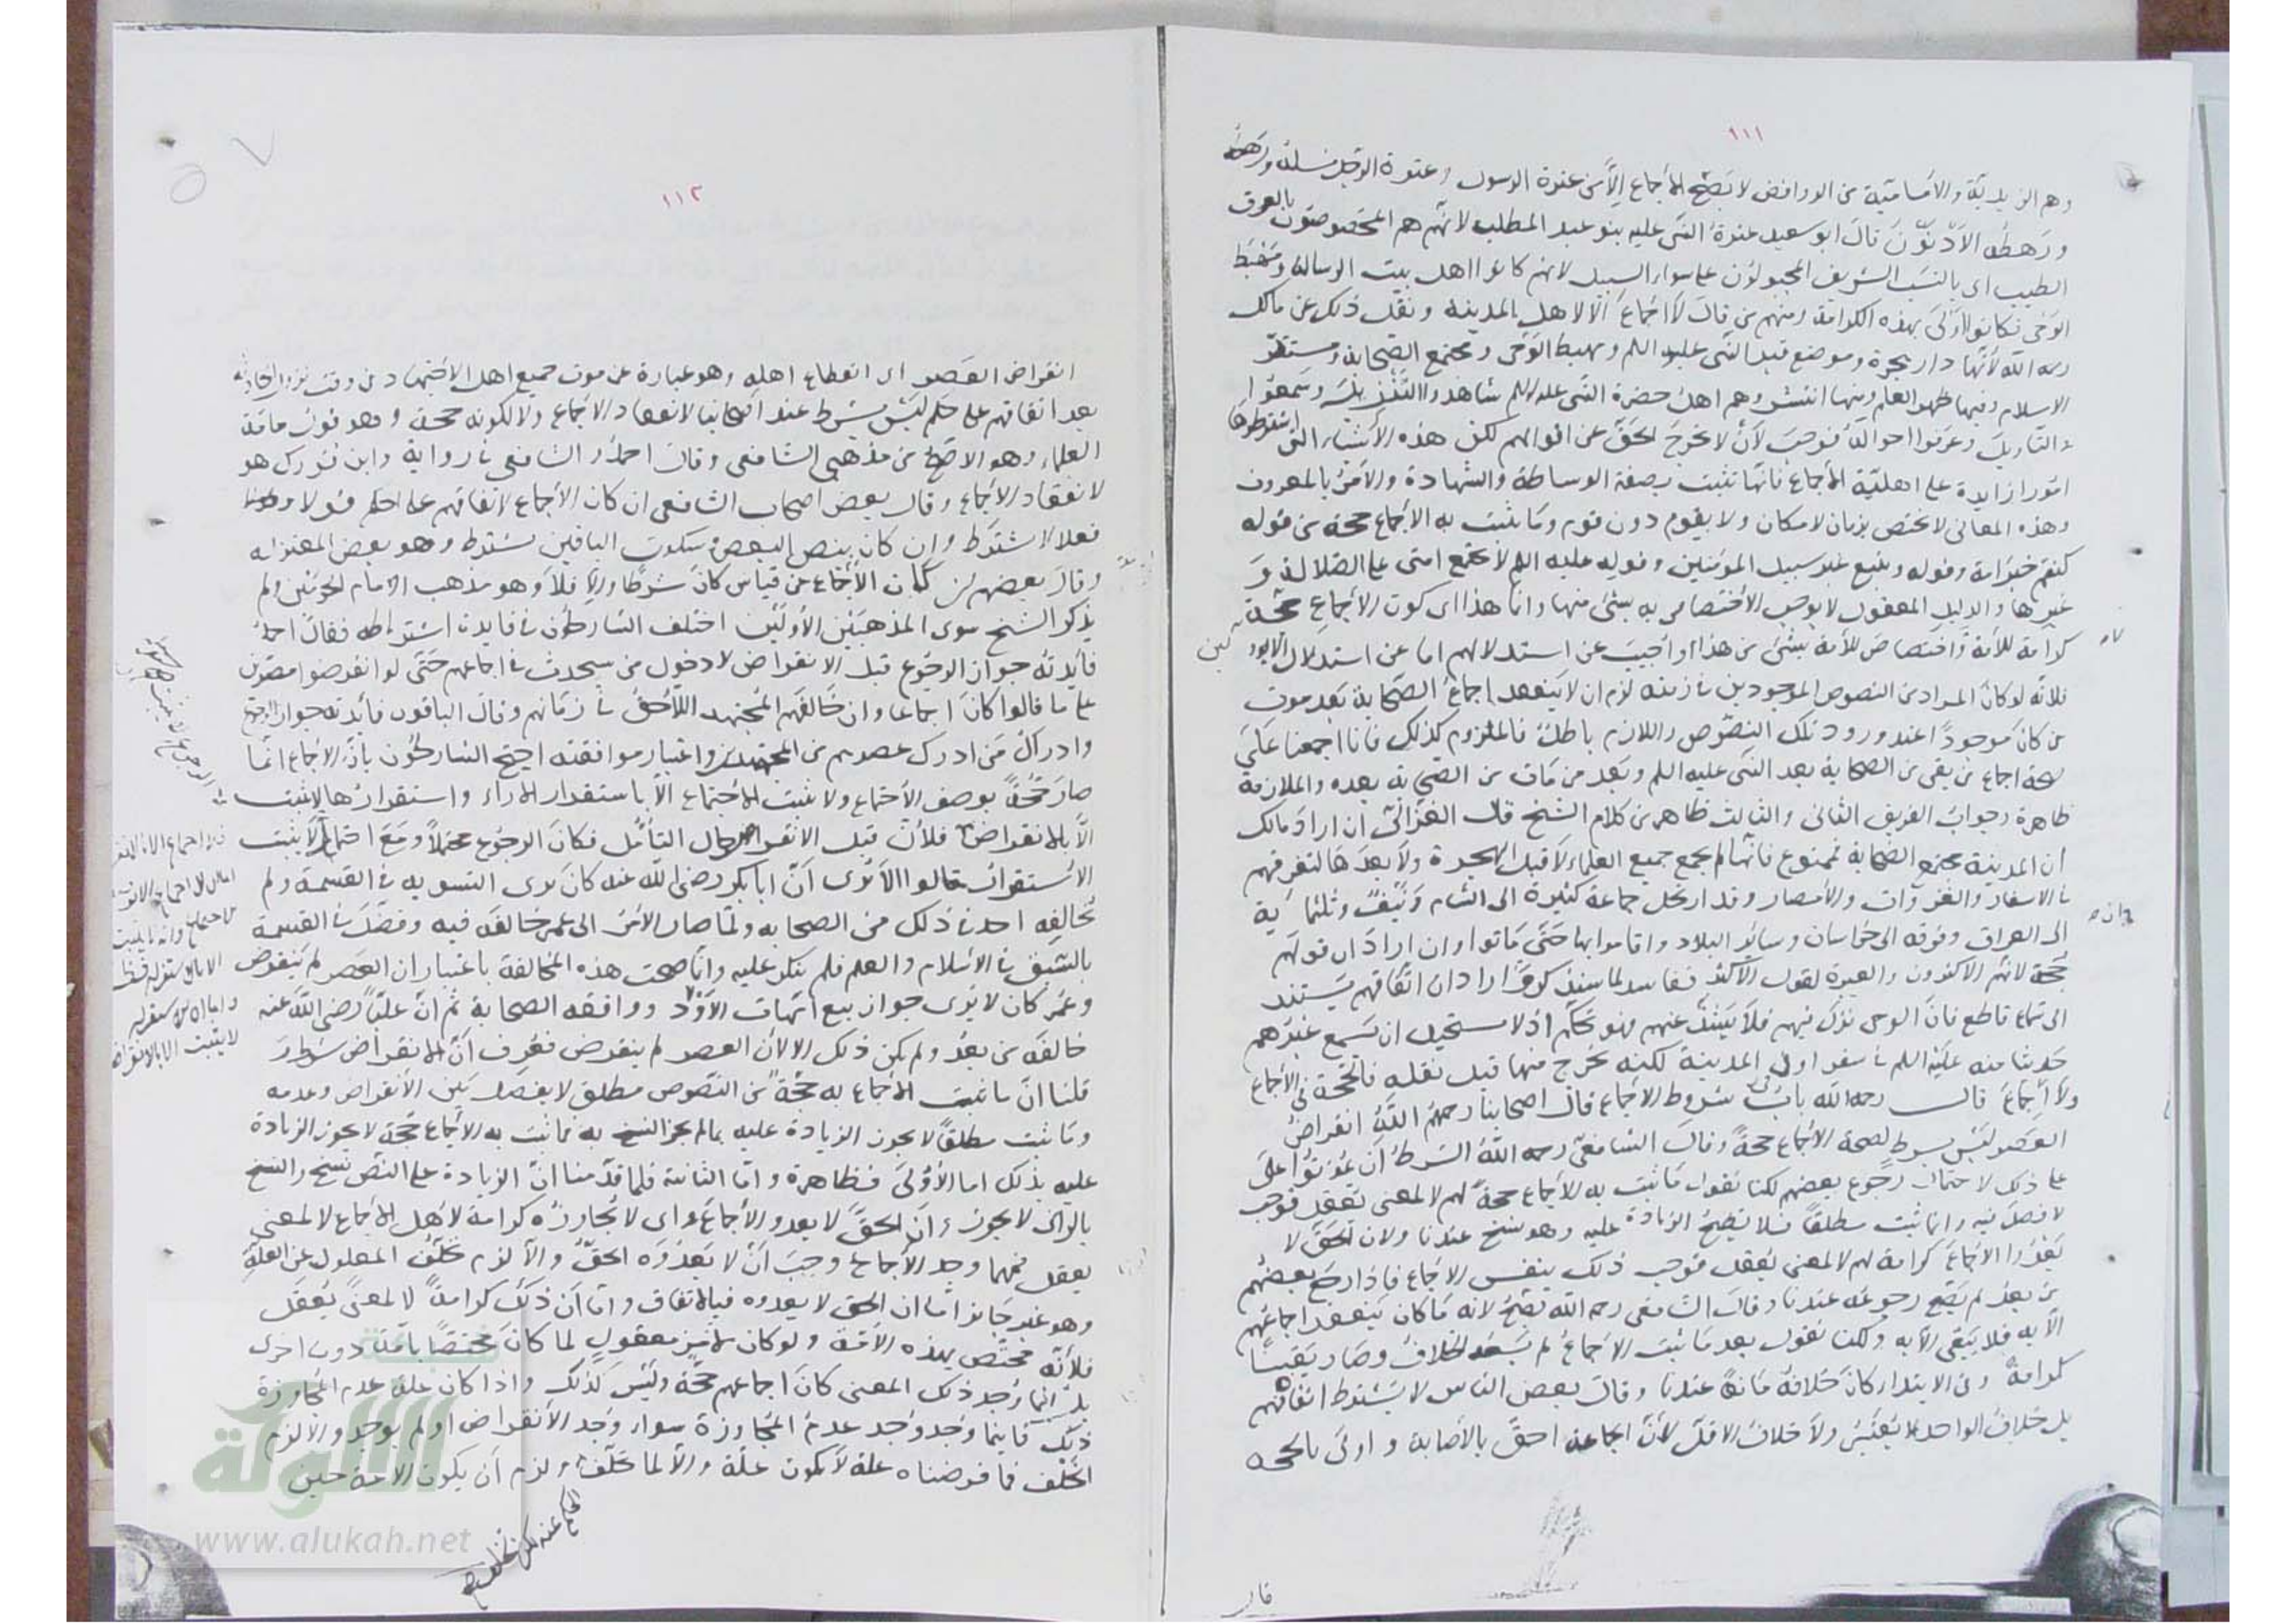 ١١١
وهم الزيدية والامامية من الروافض لا يصح الاجماع الا من عترة الرسول وعترة الرجل نسله ورهطه
ورهطه الادنون قال ابو سعيد عترة النبي عليه بنو عبد المطلب لانهم هم المخصوصون بالعرق
الطيب اى بالنسب الشريف المجبولون على سواء السبيل لانهم كانوا اهل بيت الرسالة ومهبط
الوحى فكانوا اولى بهذه الكرامة ومنهم من قال لا اجماع الا لاهل المدينة ونقل ذلك عن مالك
رحمه الله لانها دار هجرة وموضع قبر النبي عليه السلم ومهبط الوحى ومجتمع الصحابة ومستقر
الاسلام وفيها ظهر العلم ومنها انتشر وهم اهل حضرة النبي عليه السلم شاهدوا التنزيل وسمعوا
التأويل وعرفوا احواله فوجب لان لا يخرج الحق عن اقوالهم لكن هذه الاشياء التى اشترطوها
امورا زايدة على اهلية الاجماع فانها تثبت بصفة الوساطة والشهادة والامر بالمعروف
وهذه المعانى لا يختص بزمان لا مكان ولا بقوم دون قوم وما يثبت به الاجماع حجة من قوله
كنتم خير امة وقوله ويتبع غير سبيل المؤمنين وقوله عليه السلم لا تجتمع امتى على الضلالة و
غيرها والدليل المعقول لا يوجب الاختصاص به بشئ منها وانما هذا اى كون الاجماع حجة
كرامة للامة ولا اختصاص للامة بشئ من هذا واجيب عن استدلالهم اما عن استدلال
فلانه لو كان المراد من النصوص الموجودين فى زمنه لزم ان لا ينعقد اجماع الصحابة بعد موت
من كان موجودا عند ورود تلك النصوص واللازم باطل فالملزوم كذلك فانا اجمعنا على
صحة اجماع من بقى من الصحابة بعد النبي عليه السلم وبعد من مات من الصحابة بعده والملازمة
ظاهرة وجواب الفريق الثانى والثالث ظاهر من كلام الشيخ قال الغزالى ان اراد مالك
ان المدينة مجتمع الصحابة فممنوع فانها لم يجمع جميع العلماء لا قبل الهجرة ولا بعدها لتفرقهم
فى الاسفار والغزوات والامصار وقد ارتحل جماعة كثيرة الى الشام ونيف وثلثماية
الى العراق وفرقة الى خراسان وسائر البلاد واقاموا بها حتى ماتوا وان اراد ان قولهم
حجة لانهم الاكثرون والعبرة لقول الاكثر ففاسد لما سيذكر وان اراد ان اتفاقهم يستند
الى سماع قاطع فان الوحى نزل فيهم فلا يشذ عنهم فهو تحكم اذ لا يستحيل ان يسمع غيرهم
حديثا منه عليه السلم فى سفر او فى المدينة لكنه يخرج منها قبل نقله فالحجة فى الاجماع
ولا اجماع قال رحمه الله باب شروط الاجماع قال اصحابنا رحمهم الله انقراض
العصر ليس بشرط لصحة الاجماع حجة وقال الشافعى رحمه الله الشرط ان يموتوا على
على ذلك لاحتمال رجوع بعضهم لكنا نقول ما ثبت به الاجماع حجة لهم لا لمعنى يعقل فوجب
لا فصل فيه وانما ثبت مطلقا فلا تصح الزيادة عليه وهو نسخ عندنا ولان الحق لا
يعدوا الاجماع كرامة لهم لا لمعنى يعقل فوجب ذلك بنفس الاجماع فاذا رجع بعضهم
من بعد لم يصح رجوعه عندنا وقال الشافعى رحمه الله يصح لانه ما كان ينعقد اجماعهم
الا به فلا يبقى الا به ولكنا نقول بعد ما ثبت الاجماع لم يسعه الخلاف وصار يقينا
كرامة وفى الابتداء كان خلافه مانعا عندنا وقال بعض الناس لا يشترط اتفاقهم
بل خلاف الواحد لا يعتبر ولا خلاف الاقل لان الجماعة احق بالاصابة واولى بالحجة
قال
١١٢
انقراض العصر اى انقطاع اهله وهو عبارة عن موت جميع اهل الاجتهاد من وقت نزول الحادثة
بعد اتفاقهم على حكم ليس بشرط عند اصحابنا لانعقاد الاجماع ولا لكونه حجة وهو قول عامة
العلماء وهو الاصح من مذهبى الشافعى وقال احمد والشافعى فى رواية وابن فورك هو
لانعقاد الاجماع وقال بعض اصحاب الشافعى ان كان الاجماع لاتفاقهم على الحكم قولا و
فعلا لا اشترط وان كان بنص البعض وسكوت الباقين يشترط وهو بعض المعتزلة
وقال بعضهم ان كان الاجماع عن قياس كان شرطا والا فلا وهو مذهب الامام الحرمين ولم
يذكر الشيخ سوى المذهبين الاولين اختلف الشارطون فى فايدة اشتراطه فقال احمد
فايدته جواز الرجوع قبل الانقراض لا دخول من سيحدث فى اجماعهم حتى لو انقرضوا مصرين
على ما قالوا كان اجماعا وان خالفهم المجتهد اللاحق فى زمانهم وقال الباقون فائدته جواز الرجوع
وادراك من ادرك عصرهم من المجتهدين واعتبار موافقته احتج الشارطون بان الاجماع انما
صار حجة بوصف الاجتماع ولا يثبت الاجتماع الا باستقرار الاراء واستقرارها لا يثبت
الا بالانقراض فلان قبل الانقراض حال التأمل فكان الرجوع محتملا ومع احتماله لا يثبت
الاستقرار قالوا الا ترى ان ابا بكر رضى الله عنه كان يرى التسوية فى القسمة ولم
يخالفه احد فى ذلك من الصحابة ولما صار الامر الى عمر خالفه فيه وفضل فى القسمة
بالسبق فى الاسلام والعلم فلم ينكر عليه وانما صحت هذه المخالفة باعتبار ان العصر لم ينقرض
وعمر كان لا يرى جواز بيع امهات الاولاد ووافقه الصحابة ثم ان عليا رضى الله عنه
خالفه من بعد ولم يكن ذلك الا لان العصر لم ينقرض فعرف ان الانقراض شرط
قلنا ان ما ثبت الاجماع به حجة من النصوص مطلق لا يفصل بين الانقراض وعدمه
وما ثبت مطلقا لا يجوز الزيادة عليه بما لم يجز النسخ به فما ثبت به الاجماع حجة لا يجوز الزيادة
عليه بذلك اما الاولى فظاهرة واما الثانية فلما قدمنا ان الزيادة على النص نسخ والنسخ
بالراى لا يجوز وان الحق لا يعدو الاجماع اى لا يجاوزه كرامة لاهل الاجماع لا لمعنى
يعقل فمهما وجد الاجماع وجب ان لا يعدوه الحق والا لزم تخلف المعلول عن العلة
وهو غير جائز اما ان الحق لا يعدوه فبالاتفاق واما ان ذلك كرامة لا لمعنى يعقل
فلانه مختص بهذه الامة ولو كان لامر معقول لما كان مختصا بامة دون اخرى
بل انما وجد ذلك المعنى كان اجماعهم حجة وليس كذلك واذا كان علة عدم المجاوزة
ذلك فاينما وجد وجد عدم المجاوزة سواء وجد الانقراض او لم يوجد والا لزم
الخلف فما فرضناه علة لا يكون علة والا لما تخلف ولزم ان يكون الامة حين
www.alukah.net